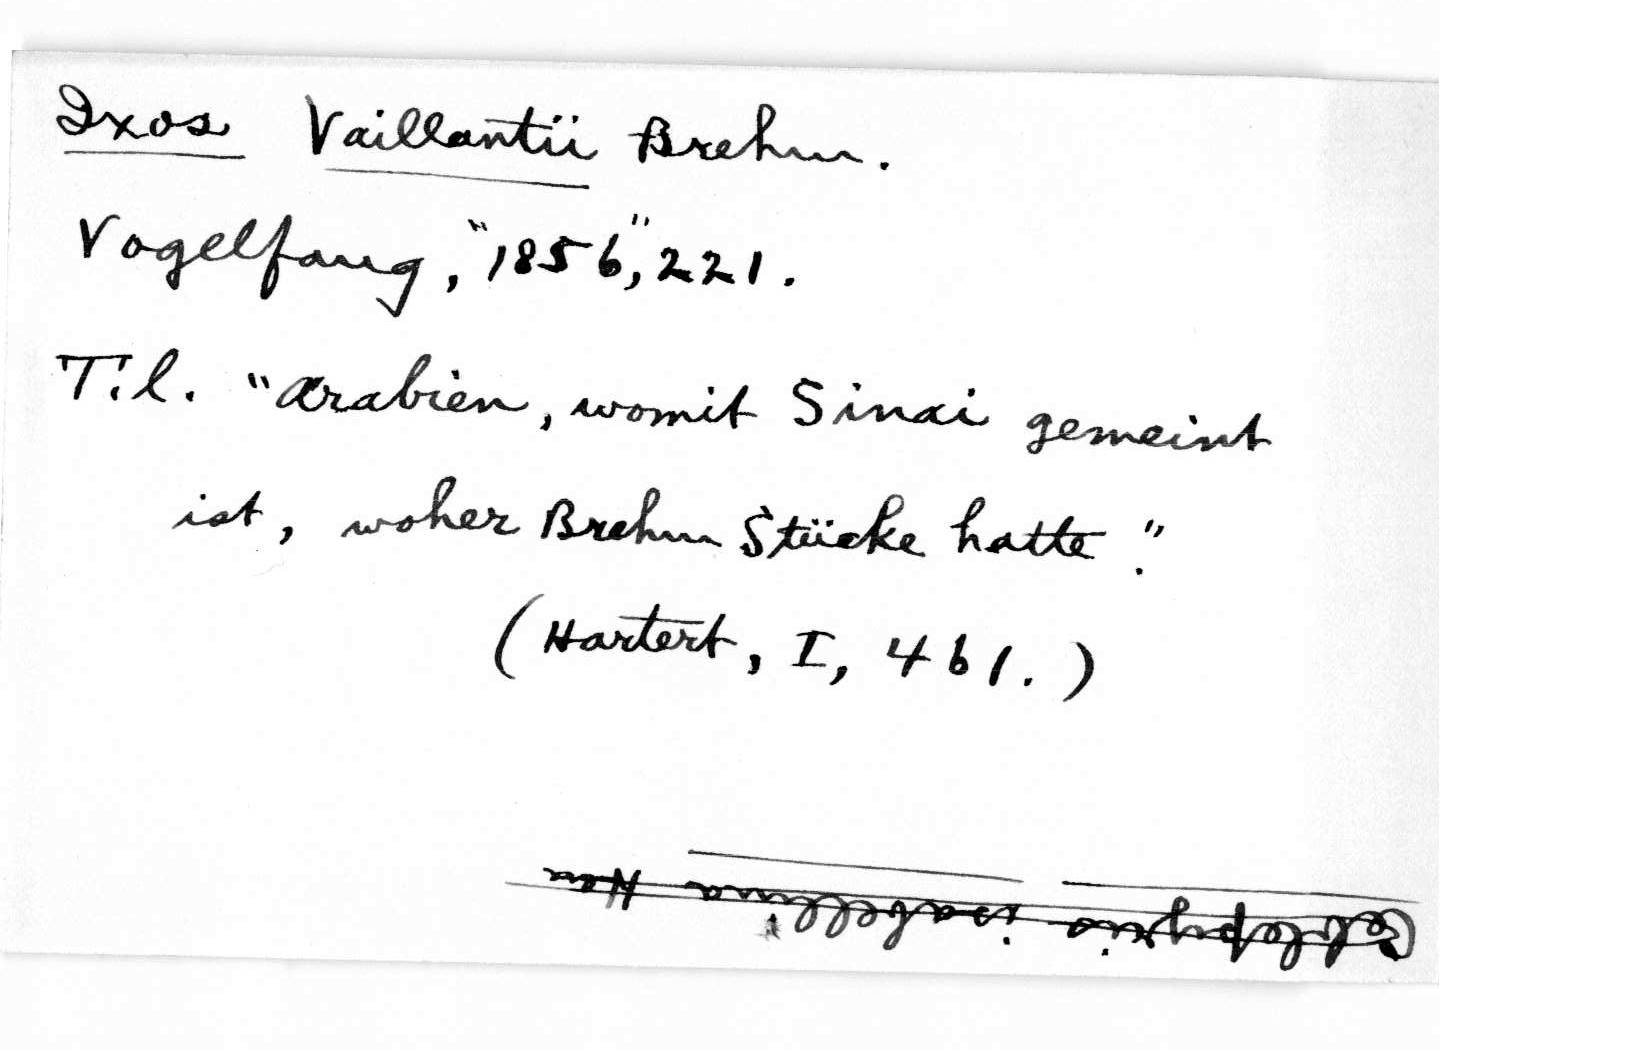 Ixos Vaillantii Brehm.
Vogelfang, "1856", 221.
T.l. "Arabien, womit Sinai gemeint
ist, woher Brehm Stücke hatte".
(Hartert, I, 461.)
isabellina